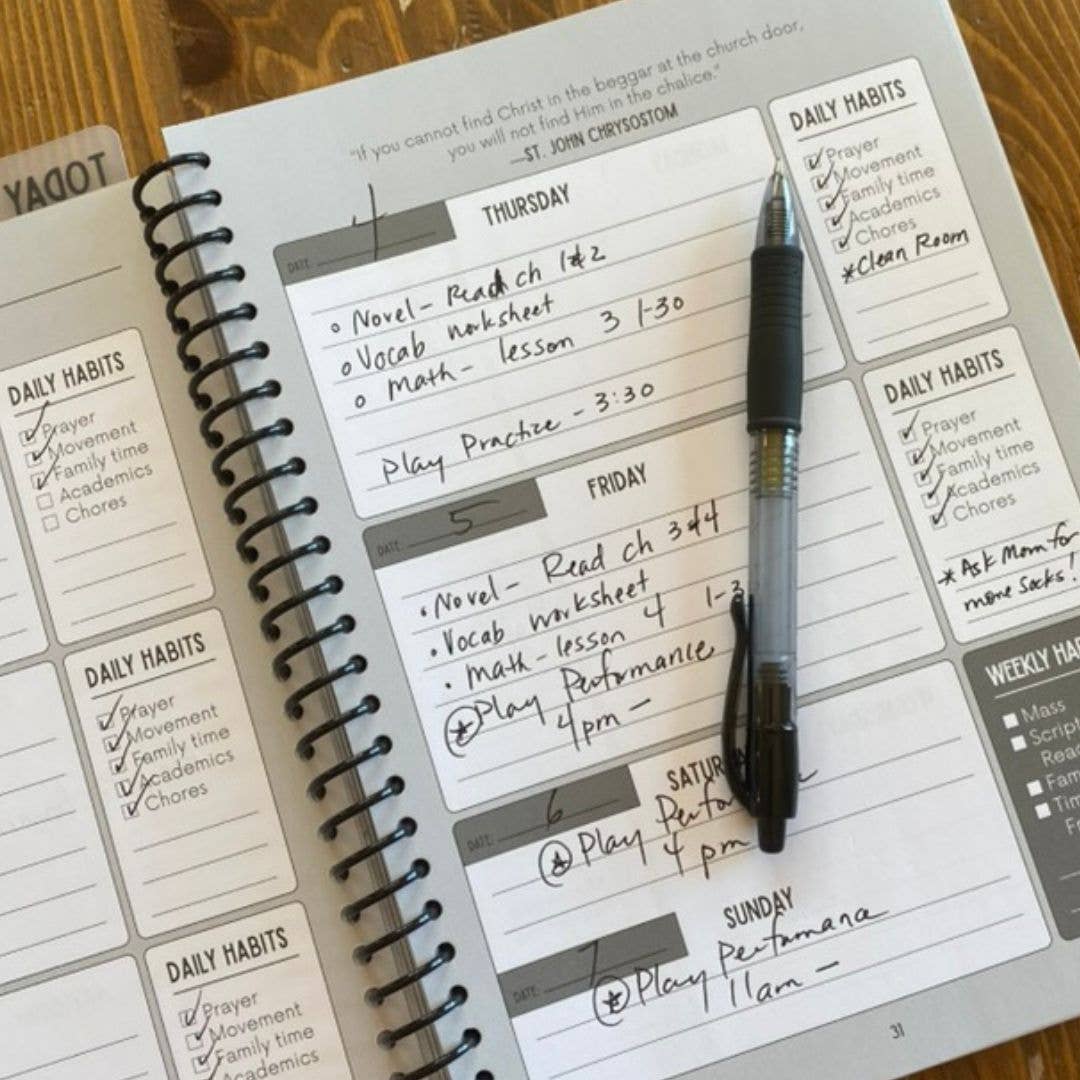 TODAY
DAILY HABITS
Prayer
Movement
Family time
Academics
Chores
DAILY HABITS
Prayer
Movement
Family time
Academics
Chores
DAILY HABITS
Prayer
Movement
Family time
Academics
"If you cannot find Christ in the beggar at the church door,
you will not find Him in the chalice."
—ST. JOHN CHRYSOSTOM
DATE: 4
THURSDAY
Novel - Read ch 1 & 2
Vocab worksheet
Math - lesson 3 1-30
Play Practice - 3:30
DAILY HABITS
Prayer
Movement
Family time
Academics
Chores
*Clean Room
DATE: 5
FRIDAY
Novel - Read ch 3 & 4
Vocab worksheet
Math - lesson 4 1-3
Play Performance
4pm -
DAILY HABITS
Prayer
Movement
Family time
Academics
Chores
*Ask Mom for
more socks!
DATE: 6
SATUR
Play Perfo
4 pm
DATE: 7
SUNDAY
Play Performance
11am -
WEEKLY HA
Mass
Script
Rea
Fam
Tim
F
31